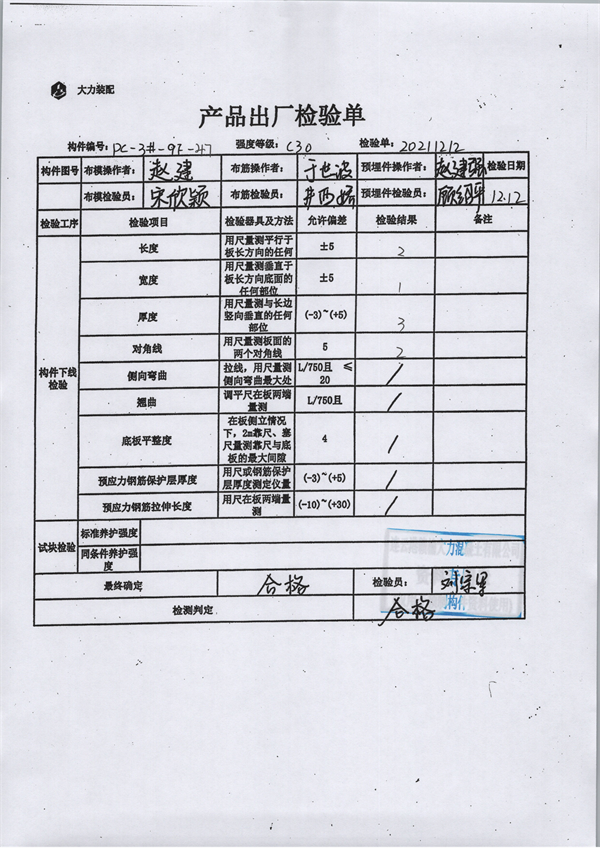 大力装配
产品出厂检验单
构件编号：PC-3#-9F- 强度等级：C30 检验单：20211212
构件图号 布模操作者：赵建 布筋操作者：于世波 预埋件操作者：赵建强 检验日期
布模检验员：宋欣颖 布筋检验员： 预埋件检验员： 12.12
检验工序 检验项目 检验器具及方法 允许偏差 检验结果 备注
构件下线检验
长度 用尺量测平行于板长方向的任何 ±5 2
宽度 用尺量测垂直于板长方向底面的任何部位 ±5 1
厚度 用尺量测与长边竖向垂直的任何部位 (-3)~(+5) 3
对角线 用尺量测板面的两个对角线 5 2
侧向弯曲 拉线，用尺量测侧向弯曲最大处 L/750且 ≤20 /
翘曲 调平尺在板两端量测 L/750且 /
底板平整度 在板侧立情况下，2m靠尺、塞尺量测靠尺与底板的最大间隙 4 /
预应力钢筋保护层厚度 用尺或钢筋保护层厚度测定仪量 (-3)~(+5) /
预应力钢筋拉伸长度 用尺在板两端量测 (-10)~(+30) /
试块检验 标准养护强度
同条件养护强度
最终确定 合格 检验员：
检测判定 合格